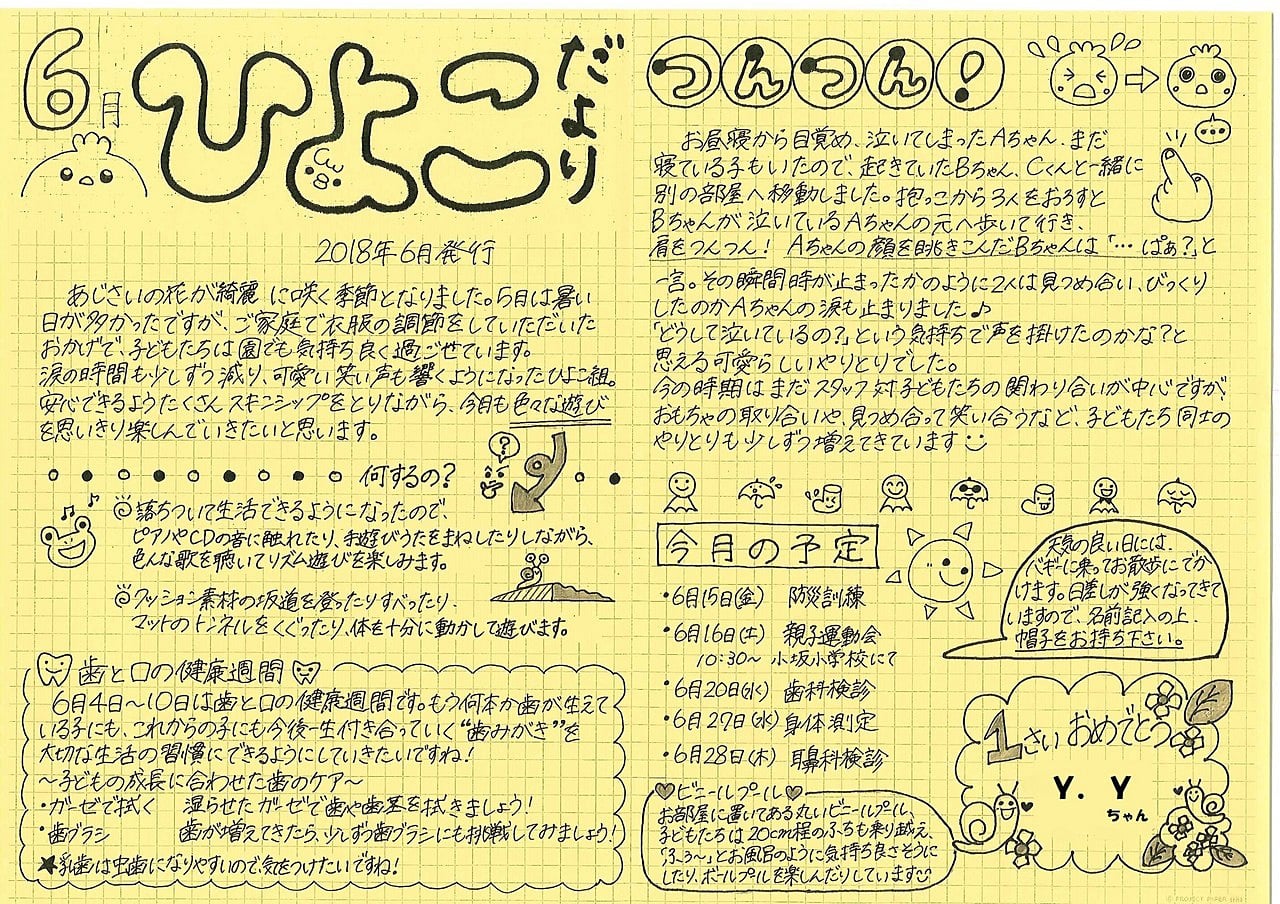 6月
ひよこ
だより
2018年6月発行
あじさいの花が綺麗に咲く季節となりました。5月は暑い
日が多かったですが、ご家庭で衣服の調節をしていただいた
おかげで、子どもたちは園でも気持ち良く過ごせています。
涙の時間も少しずつ減り、可愛い笑い声も響くようになったひよこ組。
安心できるようたくさんスキンシップをとりながら、今月も色々な遊び
を思いきり楽しんでいきたいと思います。
何するの?
?
落ちついて生活できるようになったので、
ピアノやCDの音に触れたり、手遊びうたをまねしたりしながら、
色んな歌を聴いてリズム遊びを楽しみます。
クッション素材の坂道を登ったりすべったり、
マットのトンネルをくぐったり、体を十分に動かして遊びます。
歯と口の健康週間
6月4日~10日は歯と口の健康週間です。もう何本か歯が生えて
いる子にも、これからの子にも今後一生付き合っていく“歯みがき”を
大切な生活の習慣にできるようにしていきたいですね!
~子どもの成長に合わせた歯のケア~
・ガーゼで拭く 湿らせたガーゼで歯や歯茎を拭きましょう!
・歯ブラシ 歯が増えてきたら、少しずつ歯ブラシにも挑戦してみましょう!
★乳歯は虫歯になりやすいので、気をつけたいですね!
つんつん!
お昼寝から目覚め、泣いてしまったAちゃん。まだ
寝ている子もいたので、起きていたBちゃん、Cくんと一緒に
別の部屋へ移動しました。抱っこから3人をおろすと
Bちゃんが泣いているAちゃんの元へ歩いて行き、
肩をつんつん! Aちゃんの顔を覗きこんだBちゃんは「…ぱぁ?」と
一言。その瞬間時が止まったかのように2人は見つめ合い、びっくり
したのかAちゃんの涙も止まりました♪
「どうして泣いているの?」という気持ちで声を掛けたのかな?と
思える可愛らしいやりとりでした。
今の時期はまだスタッフ対子どもたちの関わり合いが中心ですが、
おもちゃの取り合いや、見つめ合って笑い合うなど、子どもたち同士の
やりとりも少しずつ増えてきています
今月の予定
・6月15日(金) 防災訓練
・6月16日(土) 親子運動会
10:30~ 小坂小学校にて
・6月20日(水) 歯科検診
・6月27日(水) 身体測定
・6月28日(木) 耳鼻科検診
天気の良い日には、
バギーに乗ってお散歩にでか
けます。日差しが強くなってきて
いますので、名前記入の上、
帽子をお持ち下さい。
♡ビニールプール♡
お部屋に置いてある丸いビニールプール。
子どもたちは20cm程のふちも乗り越え、
「ふぅ~」とお風呂のように気持ち良さそうに
したり、ボールプールを楽しんだりしています
1さいおめでとう
Y. Y
ちゃん